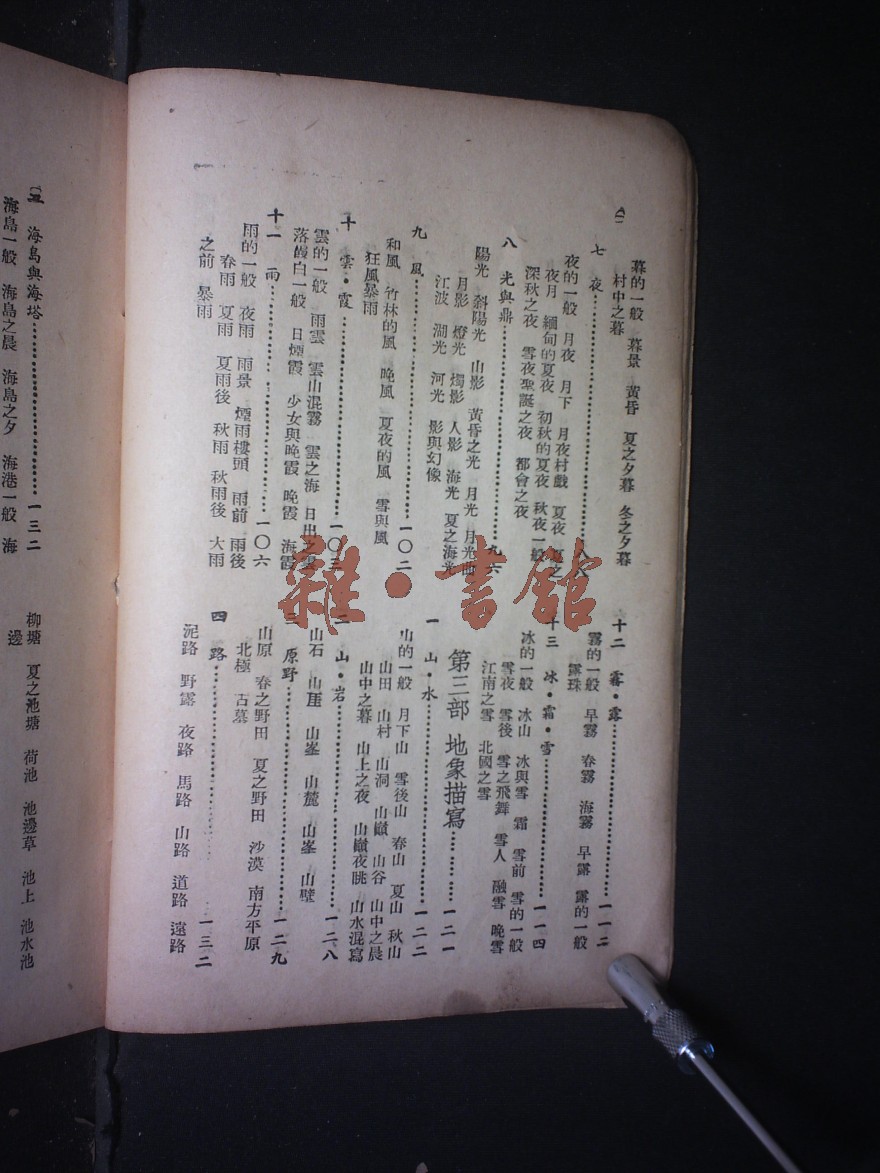 暮的一般 暮景 黃昏 夏之夕暮 冬之夕暮
村中之暮
七 夜
夜的一般 月夜 月下 月夜村戲 夏夜 夏之
夜月 緬甸的夏夜 初秋的夏夜 秋夜一般
深秋之夜 雪夜聖誕之夜 都會之夜
八 光與 九六
陽光 斜陽光 山影 黃昏之光 月光 月光
月影 燈光 燭影 人影 海光 夏之海光
江波 湖光 河光 影與幻像
九 風 一〇二
和風 竹林的風 晚風 夏夜的風 雪與風
狂風暴雨
十 雲·霞 一〇三
雲的一般 雨雲 雲山混霧 雲之海 日出之雲
落 白一般 日煙霞 少女與晚霞 晚霞 海霞
十一 雨 一〇六
雨的一般 夜雨 雨景 煙雨樓頭 雨前 雨後
春雨 夏雨 夏雨後 秋雨 秋雨後 大雨
之前 暴雨
十二 霧·露 一一二
霧的一般 早霧 春霧 海霧 早露 露的一般
露珠
十三 冰·霜·雪 一一四
冰的一般 冰山 冰與雪 霜 雪前 雪的一般
雪夜 雪後 雪之飛舞 雪人 融雪 晚雪
江南之雪 北國之雪
第三部 地象描寫 一二一
一 山·水 一二二
山的一般 月下山 雪後山 春山 夏山 秋山
山田 山村 山洞 山巔 山谷 山中之晨
山中之暮 山上之夜 山巔夜眺 山水混寫
二 山·岩 一二八
山石 山崖 山峯 山麓 山峯 山壁
三 原野 一二九
山原 春之野田 夏之野田 沙漠 南方平原
北極 古墓
四 路 一三二
泥路 野露 夜路 馬路 山路 道路 遠路
五 海島與海塔 一三二
海島一般 海島之晨 海島之夕 海港一般 海
柳塘 夏之池塘 荷池 池邊草 池上 池水池
邊
雜·書館